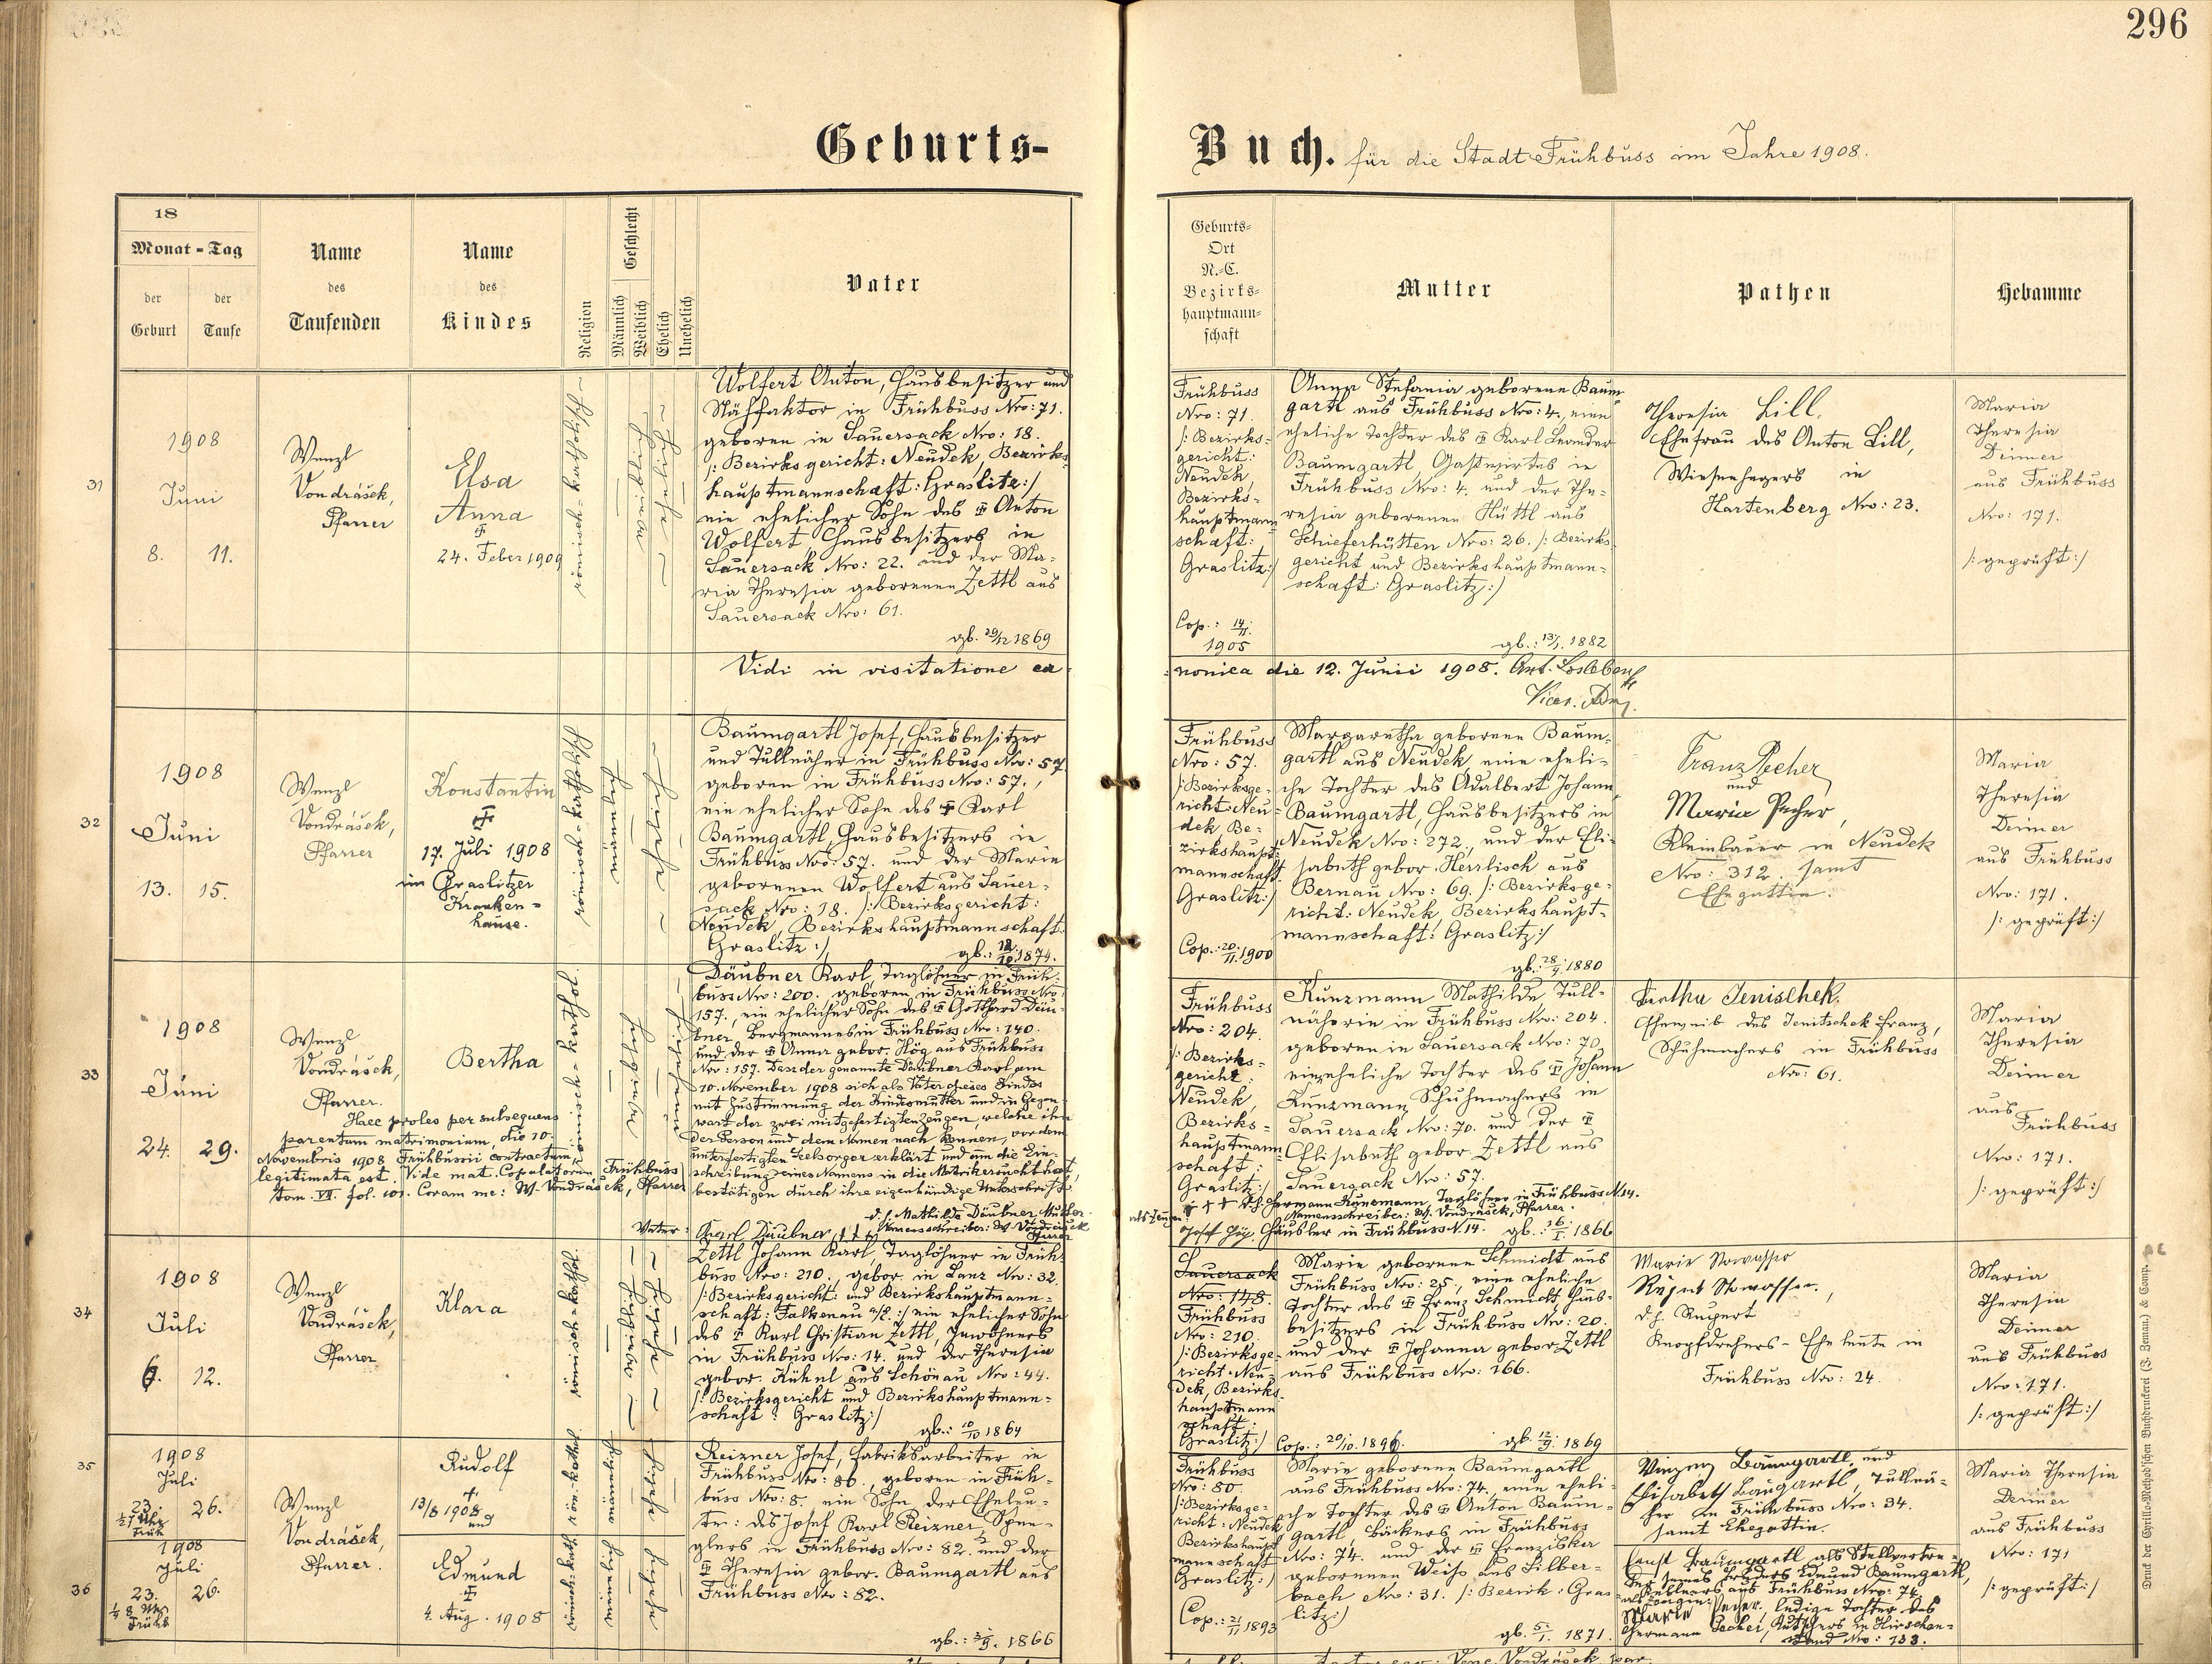 296
Geburts-
Buch. für die Stadt Frühbuss im Jahre 1908.
18
Monat - Tag
der Geburt
der Taufe
Name
des
Taufenden
Name
des
Kindes
Religion
Geschlecht
Männlich
Weiblich
Ehelich
Unehelich
Vater
Geburts-
Ort
N.-C.
Bezirks-
hauptmann-
schaft
Mutter
Pathen
Hebamme
31
1908
Juni
8. 11.
Wenzl
Vondrášek,
Pfarrer
Elsa
Anna
24. Feber 1909
römisch-katholisch
Wolfert Anton, Hausbesitzer und
Nähfaktor in Frühbuss Nro: 71.
geboren in Sauersack Nro: 18.
/: Bezirksgericht: Neudek, Bezirks-
hauptmannschaft: Graslitz:/
ein ehelicher Sohn des Anton
Wolfert Hausbesitzers in
Sauersack Nro: 22. und der Ma-
ria Theresia geborenen Zettl aus
Sauersack Nro: 61.
gb. 29/12 1869
Frühbuss
Nro: 71.
/: Bezirks-
gericht:
Neudek,
Bezirks-
hauptmann
schaft:
Graslitz:/
Cop.: 14/11.
1905
Anna Stefania geborene Baum
gartl aus Frühbuss Nro: 4., eine
eheliche Tochter des Karl Leander
Baumgartl, Gastwirtes in
Frühbuss Nro: 4. und der The-
resia geborenen Hüttl aus
Schieferhütten Nro: 26. /: Bezirks-
gericht und Bezirkshauptmann-
schaft: Graslitz:/
gb.: 13/1. 1882
Theresia Lill.
Ehefrau des Anton Lill,
Wiesenhegers in
Hartenberg Nro: 23.
Maria
Theresia
Deimer
aus Frühbuss
Nro: 171.
/: geprüft:/
Vidi in visitatione ca-
nonica die 12. Junii 1908. Ant.
32
1908
Juni
13. 15.
Wenzl
Vondrášek,
Pfarrer
Konstantin
17. Juli 1908
im Graslitzer
Kranken-
hause.
römisch-katholisch
Baumgartl Josef, Hausbesitzer
und Tullnäher in Frühbuss Nro: 57.
geboren in Frühbuss Nro: 57.,
ein ehelicher Sohn des Karl
Baumgartl, Hausbesitzers in
Frühbuss Nro: 57. und der Marie
geborenen Wolfert aus Sauer-
sack Nro: 18. /: Bezirksgericht:
Neudek, Bezirkshauptmannschaft:
Graslitz:/
1874.
Frühbuss
Nro: 57.
/: Bezirksge-
richt: Neu-
dek, Be-
zirkshaupt-
mannschaft:
Graslitz:/
Cop.: 20/11. 1900
Margaretha geborene Baum-
gartl aus Neudek, eine eheli-
che Tochter des Adalbert Johann
Baumgartl, Hausbesitzers in
Neudek Nro: 272., und der Eli-
sabeth gebor. Herrlisch aus
Bernau Nro: 69. /: Bezirksge-
richt: Neudek, Bezirkshaupt-
mannschaft: Graslitz:/
gb.: 28/9 1880
Franz Pecher
und
Maria Pecher,
Kleinbauer in Neudek
Nro: 312. samt
Ehegattin.
Maria
Theresia
Deimer
aus Frühbuss
Nro: 171.
/: geprüft:/
33
1908
Juni
24. 29.
Wenzl
Vondrášek,
Pfarrer.
Bertha
römisch-kathol.
Haec proles per subsequens
parentum matrimonium, die 10.
Novembris 1908 Frühbussii contractum,
legitimata est. Vide mat. Copulatorum Frühbuss
tom. VII. fol. 101. Coram me: W. Vondrášek, Pfarrer
Däubner Karl, Taglöhner in Früh-
buss Nro: 200. geboren in Frühbuss Nro:
157., ein ehelicher Sohn des Gotthard Däu-
bner Bergmannes in Frühbuss Nro: 140.
und der Anna gebor. Hög aus Frühbuss
Nro: 157. Dass der genannte Däubner Karl am
10. November 1908 sich als Vater dieses Kindes
mit Zustimmung der Kindesmutter und in Gegen-
wart der zwei mitgefertigten Zeugen, welche ihn
der Person und dem Namen nach kennen, vor dem
untefertigten Seelsorger erklärt und um die Ein-
schreibung seines Namens in die Matrik ersucht hat,
bestätigen durch ihre eigenhändige Unterschrift:
d. h. Mathilde Däubner Mutter
Vater: Karl Däubner, †††
Namensschreiber: W. Vondrášek
Pfarrer
Frühbuss
Nro: 204
/: Bezirks-
gericht:
Neudek,
Bezirks-
hauptmann-
schaft:
Graslitz:/
Kunzmann Mathilde, Tull-
näherin in Frühbuss Nro: 204.
geboren in Sauersack Nro: 70.
eine eheliche Tochter des Johann
Kunzmann, Schuhmachers in
Sauersack Nro: 70. und der
Elisabeth gebor. Zettl aus
Sauersack Nro: 57.
als Zeugen: ††† d. h. Hermann Kunzmann, Taglöhner in Frühbuss N. 14.
Namensschreiber: W. Vondrášek, Pfarrer.
Josef Hög, Häusler in Frühbuss N. 14. gb.: 1866
Bertha Jenischek.
Eheweib des Jenitschek Franz,
Schuhmachers in Frühbuss
Nro: 61.
Maria
Theresia
Deimer
aus
Frühbuss
Nro: 171.
/: geprüft:/
34
1908
Juli
6. 12.
Wenzl
Vondrášek,
Pfarrer
Klara
römisch-kathol.
Zettl Johann Karl, Taglöhner in Früh-
buss Nro: 210., gebor. in Lanz Nro: 32.
/: Bezirksgericht: und Bezirkshauptmann-
schaft: Falkenau a/E.:/ ein ehelicher Sohn
des Karl Christian Zettl, Inwohners
in Frühbuss Nro: 14. und der Theresia
gebor. Kühnl aus Schönau Nro: 44.
/: Bezirksgericht und Bezirkshauptmann-
schaft: Graslitz:/
gb.: 10/10 1864
Sauersack
Nro: 148.
Frühbuss
Nro: 210.
/: Bezirksge-
richt: Neu-
dek, Bezirks-
hauptmann
schaft:
Graslitz:/
Marie geborene Schmidt aus
Frühbuss Nro: 25., eine eheliche
Tochter des Franz Schmidt, Haus-
besitzers in Frühbuss Nro: 20.
und der Johanna gebor. Zettl
aus Frühbuss Nro: 166.
Cop.: 20/10. 1896. gb. 12/9. 1869
Marie Stowasser
Rupert Stowasser,
d. h. Rupert
Knopfdrehers-Eheleute in
Frühbuss Nro: 24.
Maria
Theresia
Deimer
aus Frühbuss
Nro: 171.
/: geprüft:/
35
1908
Juli
23. 26.
½7 Uhr
Früh
Wenzl
Vondrášek,
Pfarrer.
Rudolf
†
13/8 1908
und
36
1908
Juli
23. 26.
Früh
Edmund
4. Aug. 1908
Reizner Josef, Fabriksarbeiter in
Frühbuss Nro: 80., geboren in Früh-
buss Nro: 8. ein Sohn der Eheleu-
te: des Josef Karl Reizner, Spen-
glers in Frühbuss Nro: 82. und der
Theresia gebor. Baumgartl aus
Frühbuss Nro: 82.
1866
Frühbuss
Nro: 80.
/: Bezirksge-
richt: Neudek
Bezirkshaupt
mannschaft
Graslitz:/
Cop.: 21/11 1893
Marie geborene Baumgartl
aus Frühbuss Nro: 74. eine eheli-
che Tochter des Anton Baum-
gartl, Bäckers in Frühbuss
Nro: 74. und der Franziska
geborenen Weiss aus Silber-
bach Nro: 31. /: Bezirk: Gras-
litz:/
gb. 5/1. 1871.
Vinzenz Baumgartl, und
Elisabeth Baumgartl, Tullnä-
her in Frühbuss Nro: 34.
samt Ehegattin.
Ernst Baumgartl als Stellvertre-
ter seines Bruders Edmund Baumgartl,
Kellners aus Frühbuss Nro: 74.
als Zeugin:
Marie Pecher, ledige Tochter des
Hermann Pecher, Kutschers in Hirschen-
stand Nro: 133.
Maria Theresia
Deimer
aus Frühbuss
Nro: 171
/: geprüft:/
Druck der Cyrillo-Method'schen Buchdruckerei (J. Zeman) & Comp.